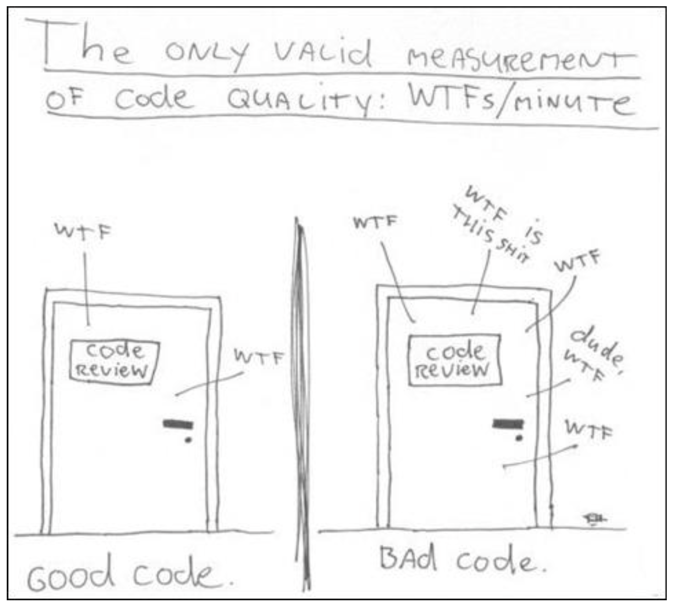 The ONLY VALID MEASUREMENT
OF Code QUALITY: WTFs/MINUTE
WTF
code
REVIEW
WTF
Good code.
WTF
WTF is
THIS SHIT
WTF
code
REVIEW
dude,
WTF
WTF
BAd code.